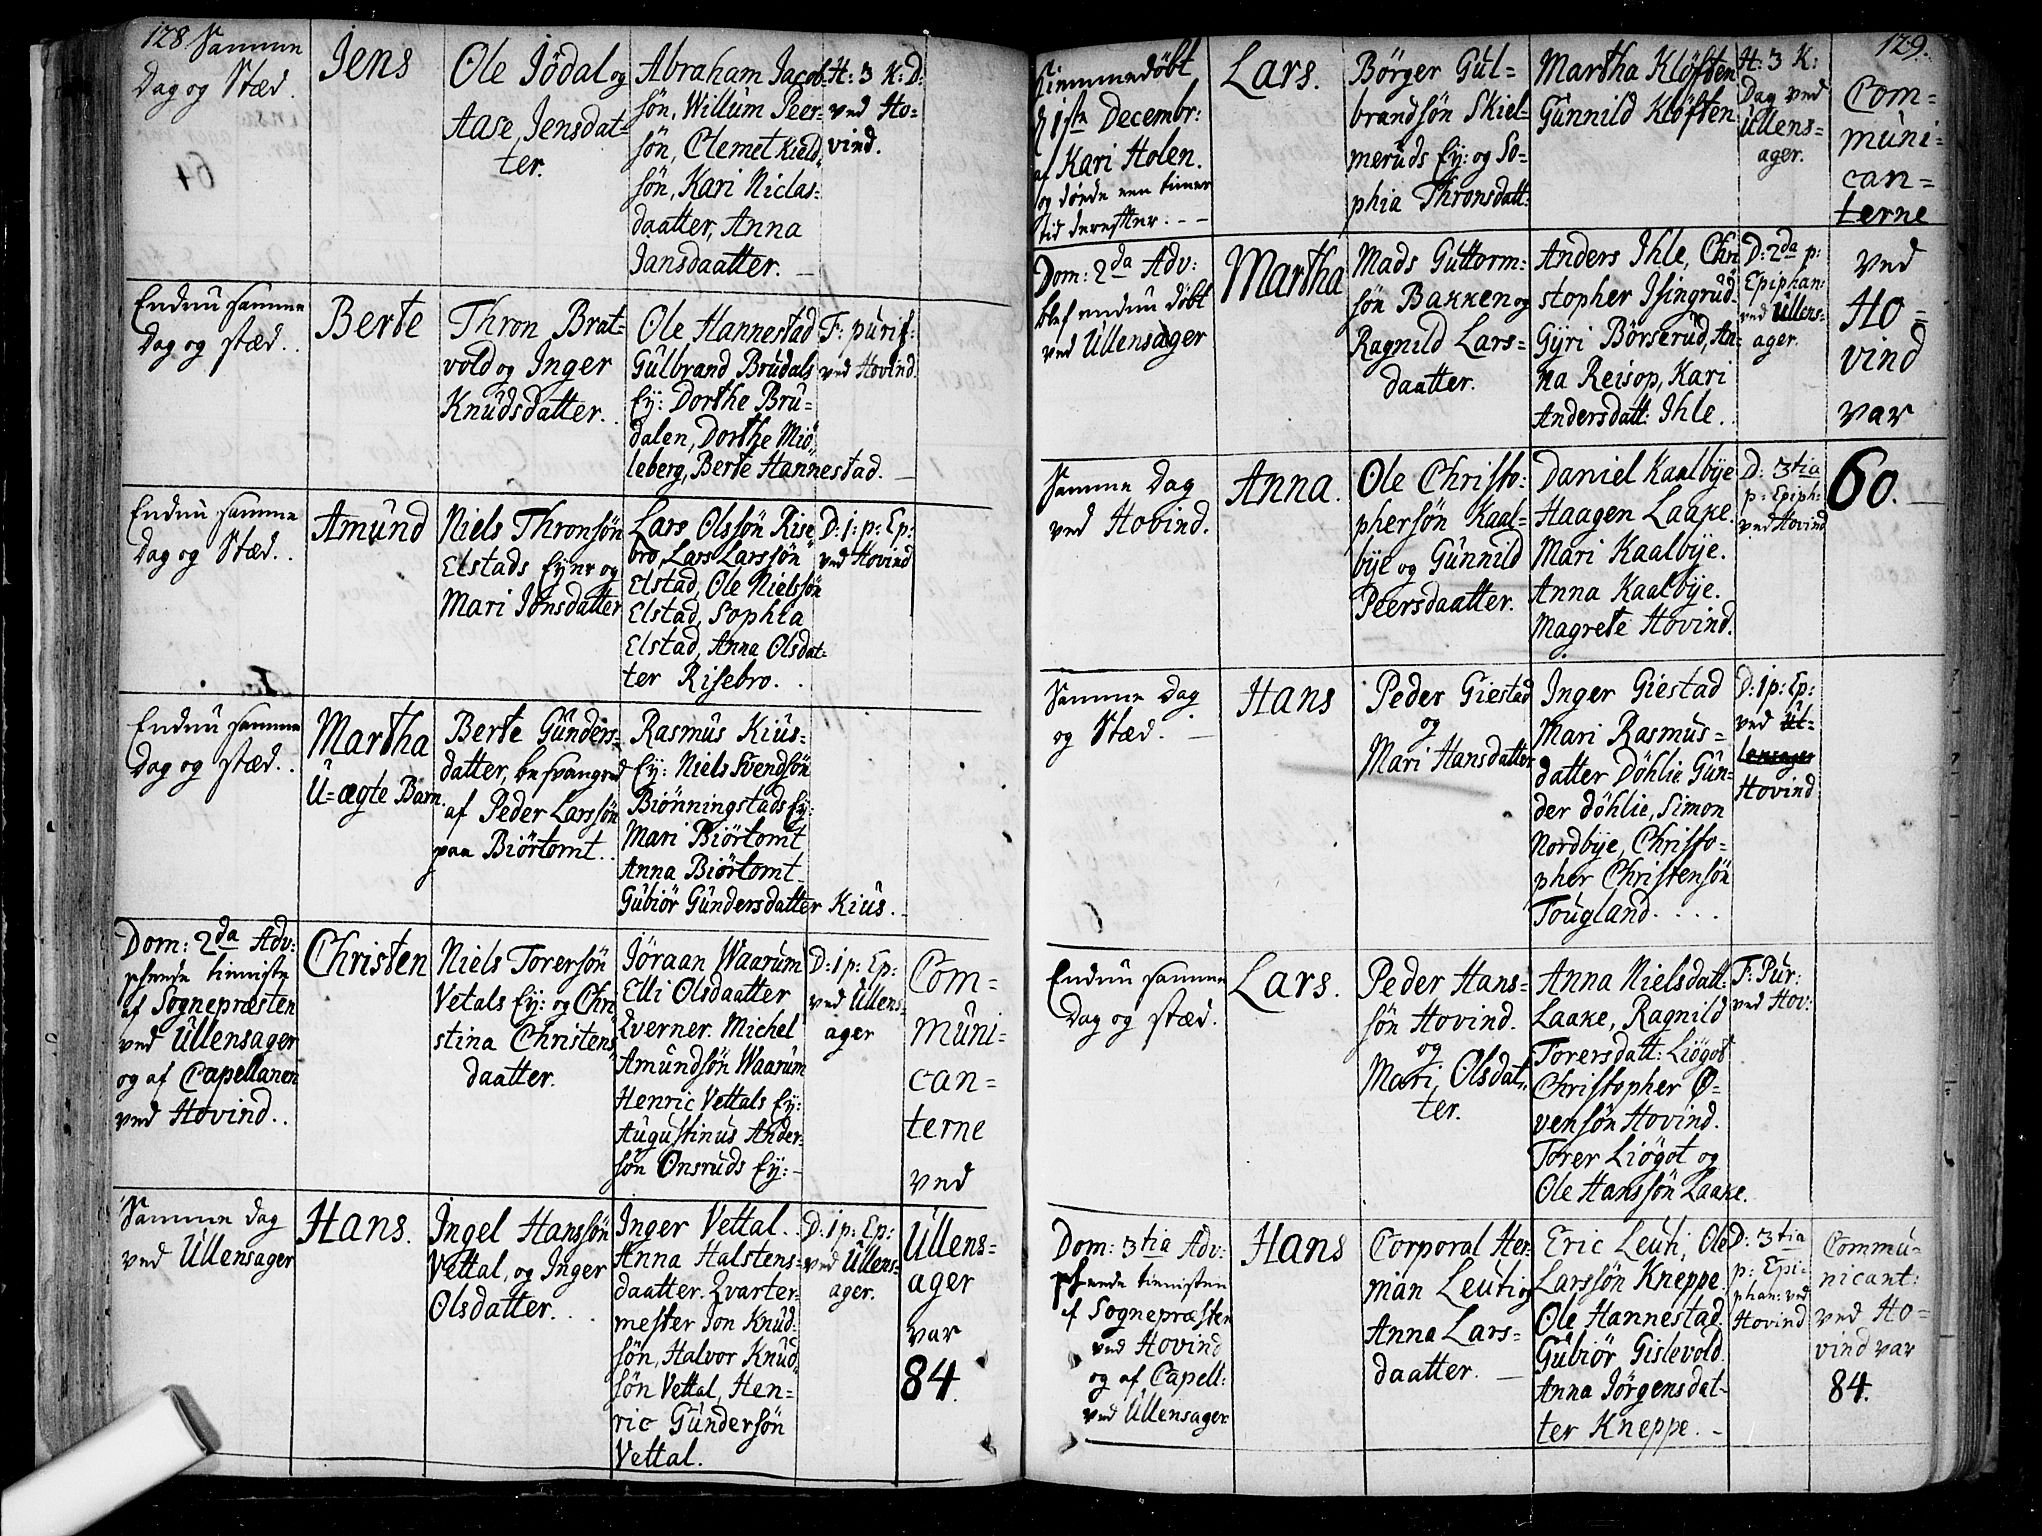 128 Samme
Dag og Stæd.
Jens
Ole Jödal og
Aase Jensdat-
ter.
Abraham Jacob-
sön, Willum Peer-
sön, Clemet Kield-
sön, Kari Niclas-
daatter, Anna
Jansdaatter. —
H: 3 K: D:
ved Ho-
vind.
Endnu samme
Dag og stæd.
Berte
Thron Brat-
vold og Inger
Knudsdatter.
Ole Hannestad
Gulbrand Brudals
Ey: Dorthe Bru-
dalen, Dorthe Miö-
leberg, Berte Hannestad. —
F: purif:
ved Hovind.
Endnu samme
Dag og Stæd.
Amund
Niels Thronsön
Elstads Eynr og
Mari Jonsdatter
Lars Olssön Rise-
bro, Lars Larssön
Elstad, Ole Nielssön
Elstad, Sophia
Elstad, Anna Olsdat-
ter Risebro.
D: 1: p: Ep:
ved Hovind
Endnu samme
Dag og stæd.
Martha
U=ægte Barn.
Berte Gunders-
datter, besvangred
af Peder Larssön
paa Biörtomt.
Rasmus Kius-
Ey: Niels Svendsön
Biönningstads Ey:
Mari Biörtomt
Anna Biörtomt
Gubiör Gundersdatter Kius.
Dom: 2da Adv:
tienniste
af Sognepræsten
ved Ullensager
og af Capellanen
ved Hovind.
Christen
Niels Torersön
Vetals Ey: og Chri-
stina Christens-
daatter.
Jöraan Waarum
Elli Olsdaatter
Qverner. Michel
Amundsön Waarum
Henric Vettals Ey:
Augustinus Ander-
sön Onsruds Ey: —
D: 1 p: Ep:
ved Ullens-
ager
Com-
muni-
can-
terne
ved
Ullens-
ager
var
84.
Samme Dag
ved Ullensager
Hans.
Ingel Hanssön
Vettal, og Inger
Olsdatter.
Inger Vettal.
Anna Halstens-
daatter. Qvarter-
mester Jon Knud-
sön, Halvor Knud-
sön Vettal, Hen-
ric Gundersön
Vettal.
D: 1 p: Ep:
ved Ullens-
ager.
129.
Hiemmedöbt
d 1ste Decembr:
af Kari Holen.
og döde en times
tid derefter. — —
Lars.
Börger Gul-
brandsön Skiel-
meruds Ey: og So-
phia Thronsdatt:
Martha Klöften
Gunnild Klöften
H: 3 K:
Dag ved
Ullens-
ager.
Com-
muni-
can-
terne
ved
Ho-
vind
var
60.
Dom: 2da Adv:
blef endnu döbt
ved Ullensager
Martha
Mads Guttorm-
sön Bakken og
Ragnild Lars-
daatter.
Anders Ihle, Chri-
stopher Isingrud.
Gyri Börserud, An-
na Reisop, Kari
Andersdatt: Ihle.
D: 2da p:
Epiphan:
ved Ullens-
ager.
Samme Dag
ved Hovind.
Anna.
Ole Christo-
phersön Kaal-
bye og Gunnild
Peersdaatter.
Daniel Kaalbye
Haagen Laake.
Mari Kaalbye.
Anna Kaalbye.
Magrete Hovind.
D: 3tia
p: Epiph:
ved Hovind
Samme Dag
og Stæd. —
Hans
Peder Giestad
og
Mari Hansdatter
Inger Giestad
Mari Rasmus-
datter Döhlie Gun-
der Döhlie, Simon
Nordbye, Christo-
pher Christensön
Tougland.
D: 1 p: Ep:
ved Ul-
lensager
Hovind
Endnu samme
Dag og stæd.
Lars.
Peder Hans-
sön Hovind.
og
Mari Olsdat-
ter.
Anna Nielsdatt:
Laake, Ragnild
Torersdatt: Liögot
Christopher O-
vensön Hovind.
Torer Liögot og
Ole Hanssön Laake.
F: Pur:
ved Hov:
Dom: 3tia Adv:
tiennisten
af Sognepræsten
ved Hovind
og af Capell:
ved Ullensager
Hans
Corporal Her-
man Leuti og
Anna Lars-
daatter. —
Eric Leuti, Ole
Larssön Kneppe.
Ole Hannestad.
Gubiör Gislevold.
Anna Jörgensdat-
ter Kneppe. —
D: 3tia
p: Epi-
phan: ved
Hovind
Commu-
nicant:
ved Ho-
vind var
84.